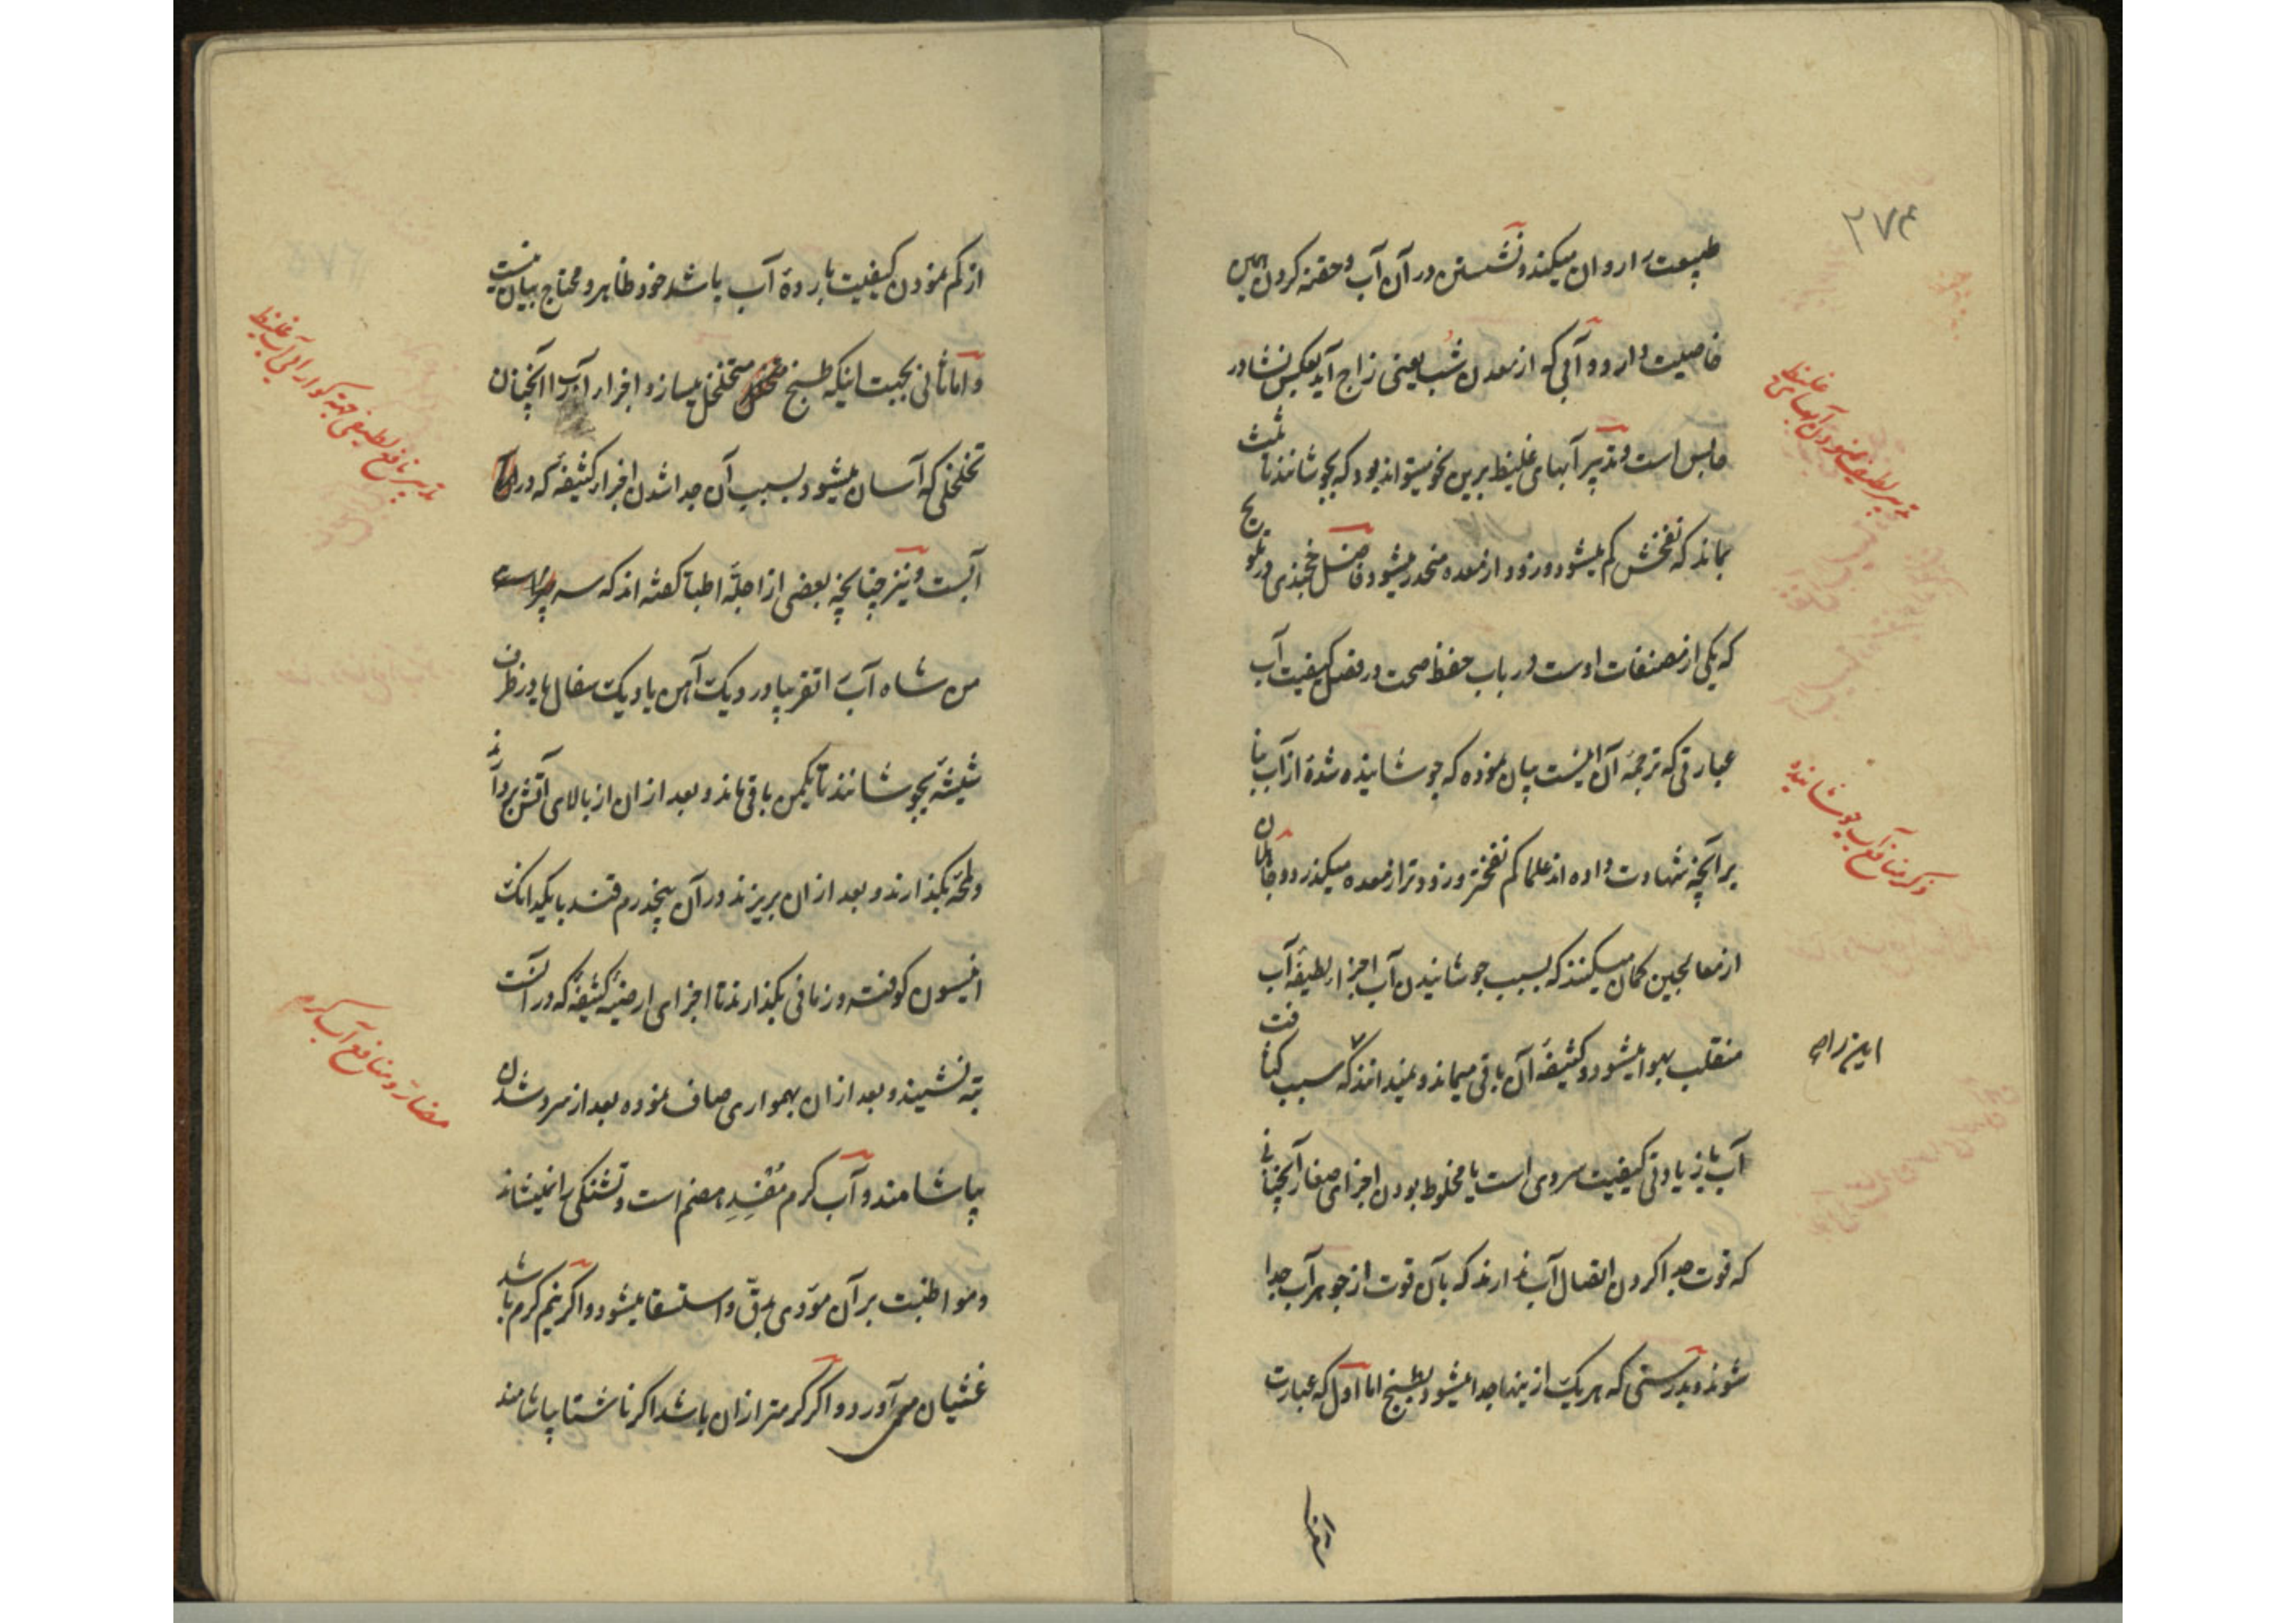 ۲۷۴
طبیعت را روان میکند و نشستن در آن آب و حقنه کردن همین
خاصیت دارد و آبی که از معدن شب یعنی زاج آید بعکس نشادر
حابس است و تدبیر آبهای غلیظ برین نحو میتواند بود که بجوشانند تا ثلث
بماند که نفخش کم میشود و زود از معده منحدر میشود فاضل خجندی در تلویح
که یکی از مصنفات اوست در باب حفظ صحت در فصل کیفیت آب
عبارتی که ترجمه آن اینست بیان نموده که جوشانیده شده از آب بنا
بر آنچه شهادت داده اند علما کم نفختر و زودتر از معده میکذرد و جاهلان
از معالجین کمان میکنند که بسبب جوشانیدن آب اجزاء لطیفه آب
منقلب بهوا میشود و کثیفه آن باقی میماند و نمیدانند که سبب کثافت
آب یا زیادتی کیفیت سردی است یا مخلوط بودن اجزای صغار آنچنانی
که قوت جدا کردن اتصال آب ندارند که بآن قوت از جوهر آب جدا
شوند و بدرستی که هر یک از ینها جدا میشود بطبخ اما اول که عبارت
تدبیر لطیف نمودن آبهای غلیظ
ذکر منافع آب جوشانیده
از کم نمودن کیفیت بارده آب باشد خود ظاهر و محتاج ببیان نیست
و اما ثانی بجهت اینکه طبخ متخلخل میسازد اجزاء آب را آنچنان
تخلخلی که آسان میشود بسبب آن جدا شدن اجزاء کثیفه که در
آبست و نیز چنانچه بعضی از اجله اطبا کفته اند که سه
من شاه آب را تقریبا در دیک آهن یا دیک سفال یا در ظرف
شیشه بجوشانند تا یکمن باقی ماند و بعد ازان از بالای آتش بردارند
و لمحه بکذارند و بعد ازان بریزند در آن پنجدرم قند با یکدانک
انیسون کوفته و زمانی بکذارند تا اجزای ارضیه کثیفه که در آنست
ته نشیند و بعد ازان بهمواری صاف نموده بعد از سرد شدن
بیاشامند و آب کرم مفسد هضم است و تشنکی را نمینشاند
و مواظبت بر آن مؤدی بدق و استسقا میشود و اکر نیم کرم باشد
غثیان می آورد و اکر کرمتر ازان باشد اکر ناشتا بیاشامند
مضار و منافع آب کرم